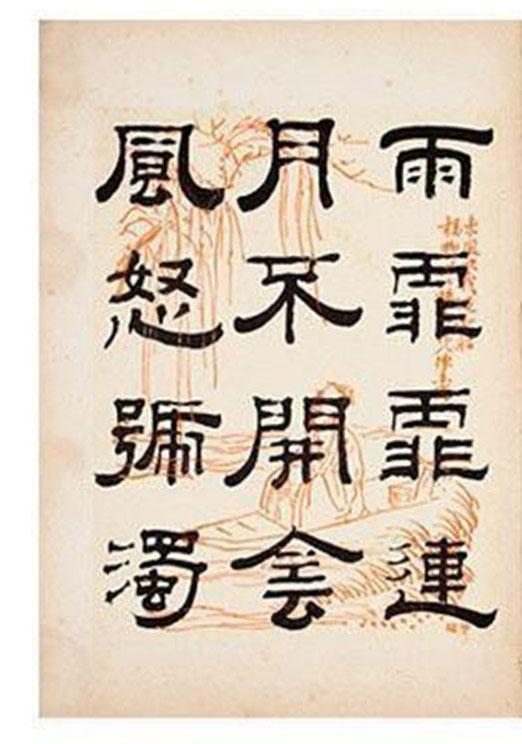 雨霏霏連
月不開侌
風怒號濁